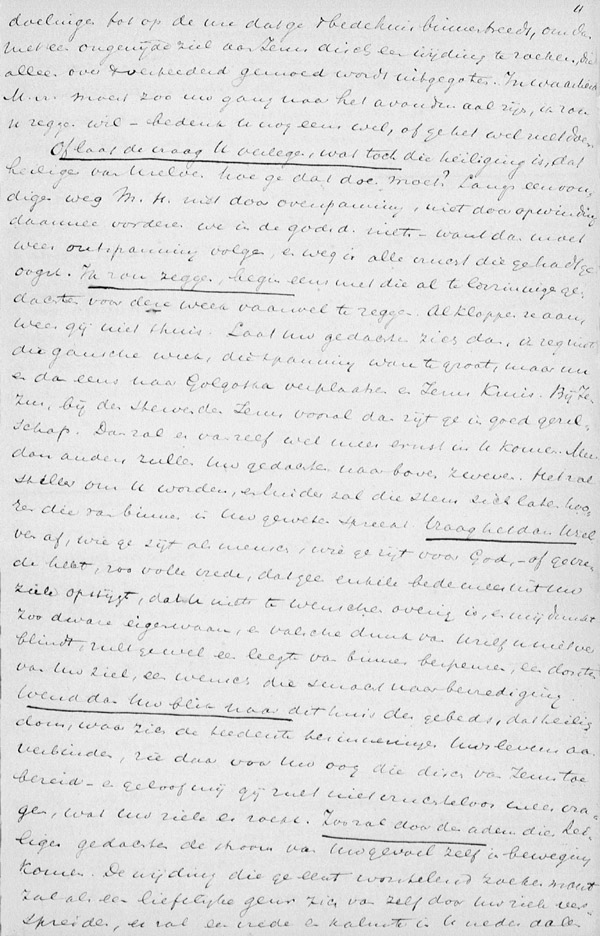 11
doelnige tot op de ure dat ge 't bedehuis binnentreedt, om dan
met een ongewijde ziel aan Jezus disch een wijding te zoeken, die
alleen over 't voorbereid gemoed wordt uitgegoten. In waarheid
M. H. moest zoo uw gang naar het avondmaal zijn, ik zou
u zeggen wel - bedenk u nog eens wel, of ge het wel niet doen
Of laat de vraag u verlegen, wat toch die heiliging is, dat
heiligen van u zelven hoe ge dat doen moet? Langs eenvou-
digen weg M. H. niet door overspanning, niet door opwinding
daarmee vorderen we in de godsd. niets - want dan moet
weer ontspanning volgen, en weg is alle ernst die ge hadt ge-
oogst. Ik zou zeggen, begin eens met die al te lossinnige ge-
dachten voor deze week vaarwel te zeggen. Al kloppen ze aan,
wees gij niet thuis. Laat uw gedachten zich dan, ik zeg niet
de gansche week, die spanning ware te groot, maar nu
en dan eens naar Golgotha verplaatsen en Jezus Kruis. Bij Je-
zus, bij den stervenden Jezus vooral dan zijt ge in goed gezel-
schap. Dan zal er van zelf wel meer ernst in u komen. Meer
dan anders zullen uw gedachten naar boven zweven. Het zal
stiller om u worden, en luider zal die stem zich laten hoo-
ren die van binnen in uw geweten spreekt. Vraag het dan u zel-
ven af, wie ge zijt als mensch, wie ge zijt voor God, - of ge vre-
de hebt, zoo volle vrede, dat geen enkele bede meer uit uw
ziele opstijgt, dat u niets te wenschen overig is, en mij dunkt
zoo dwaze eigenwaan, en valsche dunk van u zelf u niet ver-
blindt, zult ge wel een leegte van binnen bespeuren, een dorsten
van uw ziel, een wensch die smacht naar bevrediging
Wend dan uw blik naar dit huis des gebeds, dat heilig-
dom, waar zich de teederste herinneringen uws levens aan
verbinden, zie daar voor uw oog de disch van Jezus toe-
bereid - en geloof mij gij zult niet vruchteloos meer vra-
gen, wat uw ziele er zoekt. Zoo zal door den adem dier hei-
liger gedachten de stroom van uw gevoel zelf in beweging
komen. De wijding die ge eerst worstelend zoeken moest
zal als een liefelijke geur zich van zelf door uw ziel ver-
spreiden, er zal een vrede en kalmte in u nederdalen